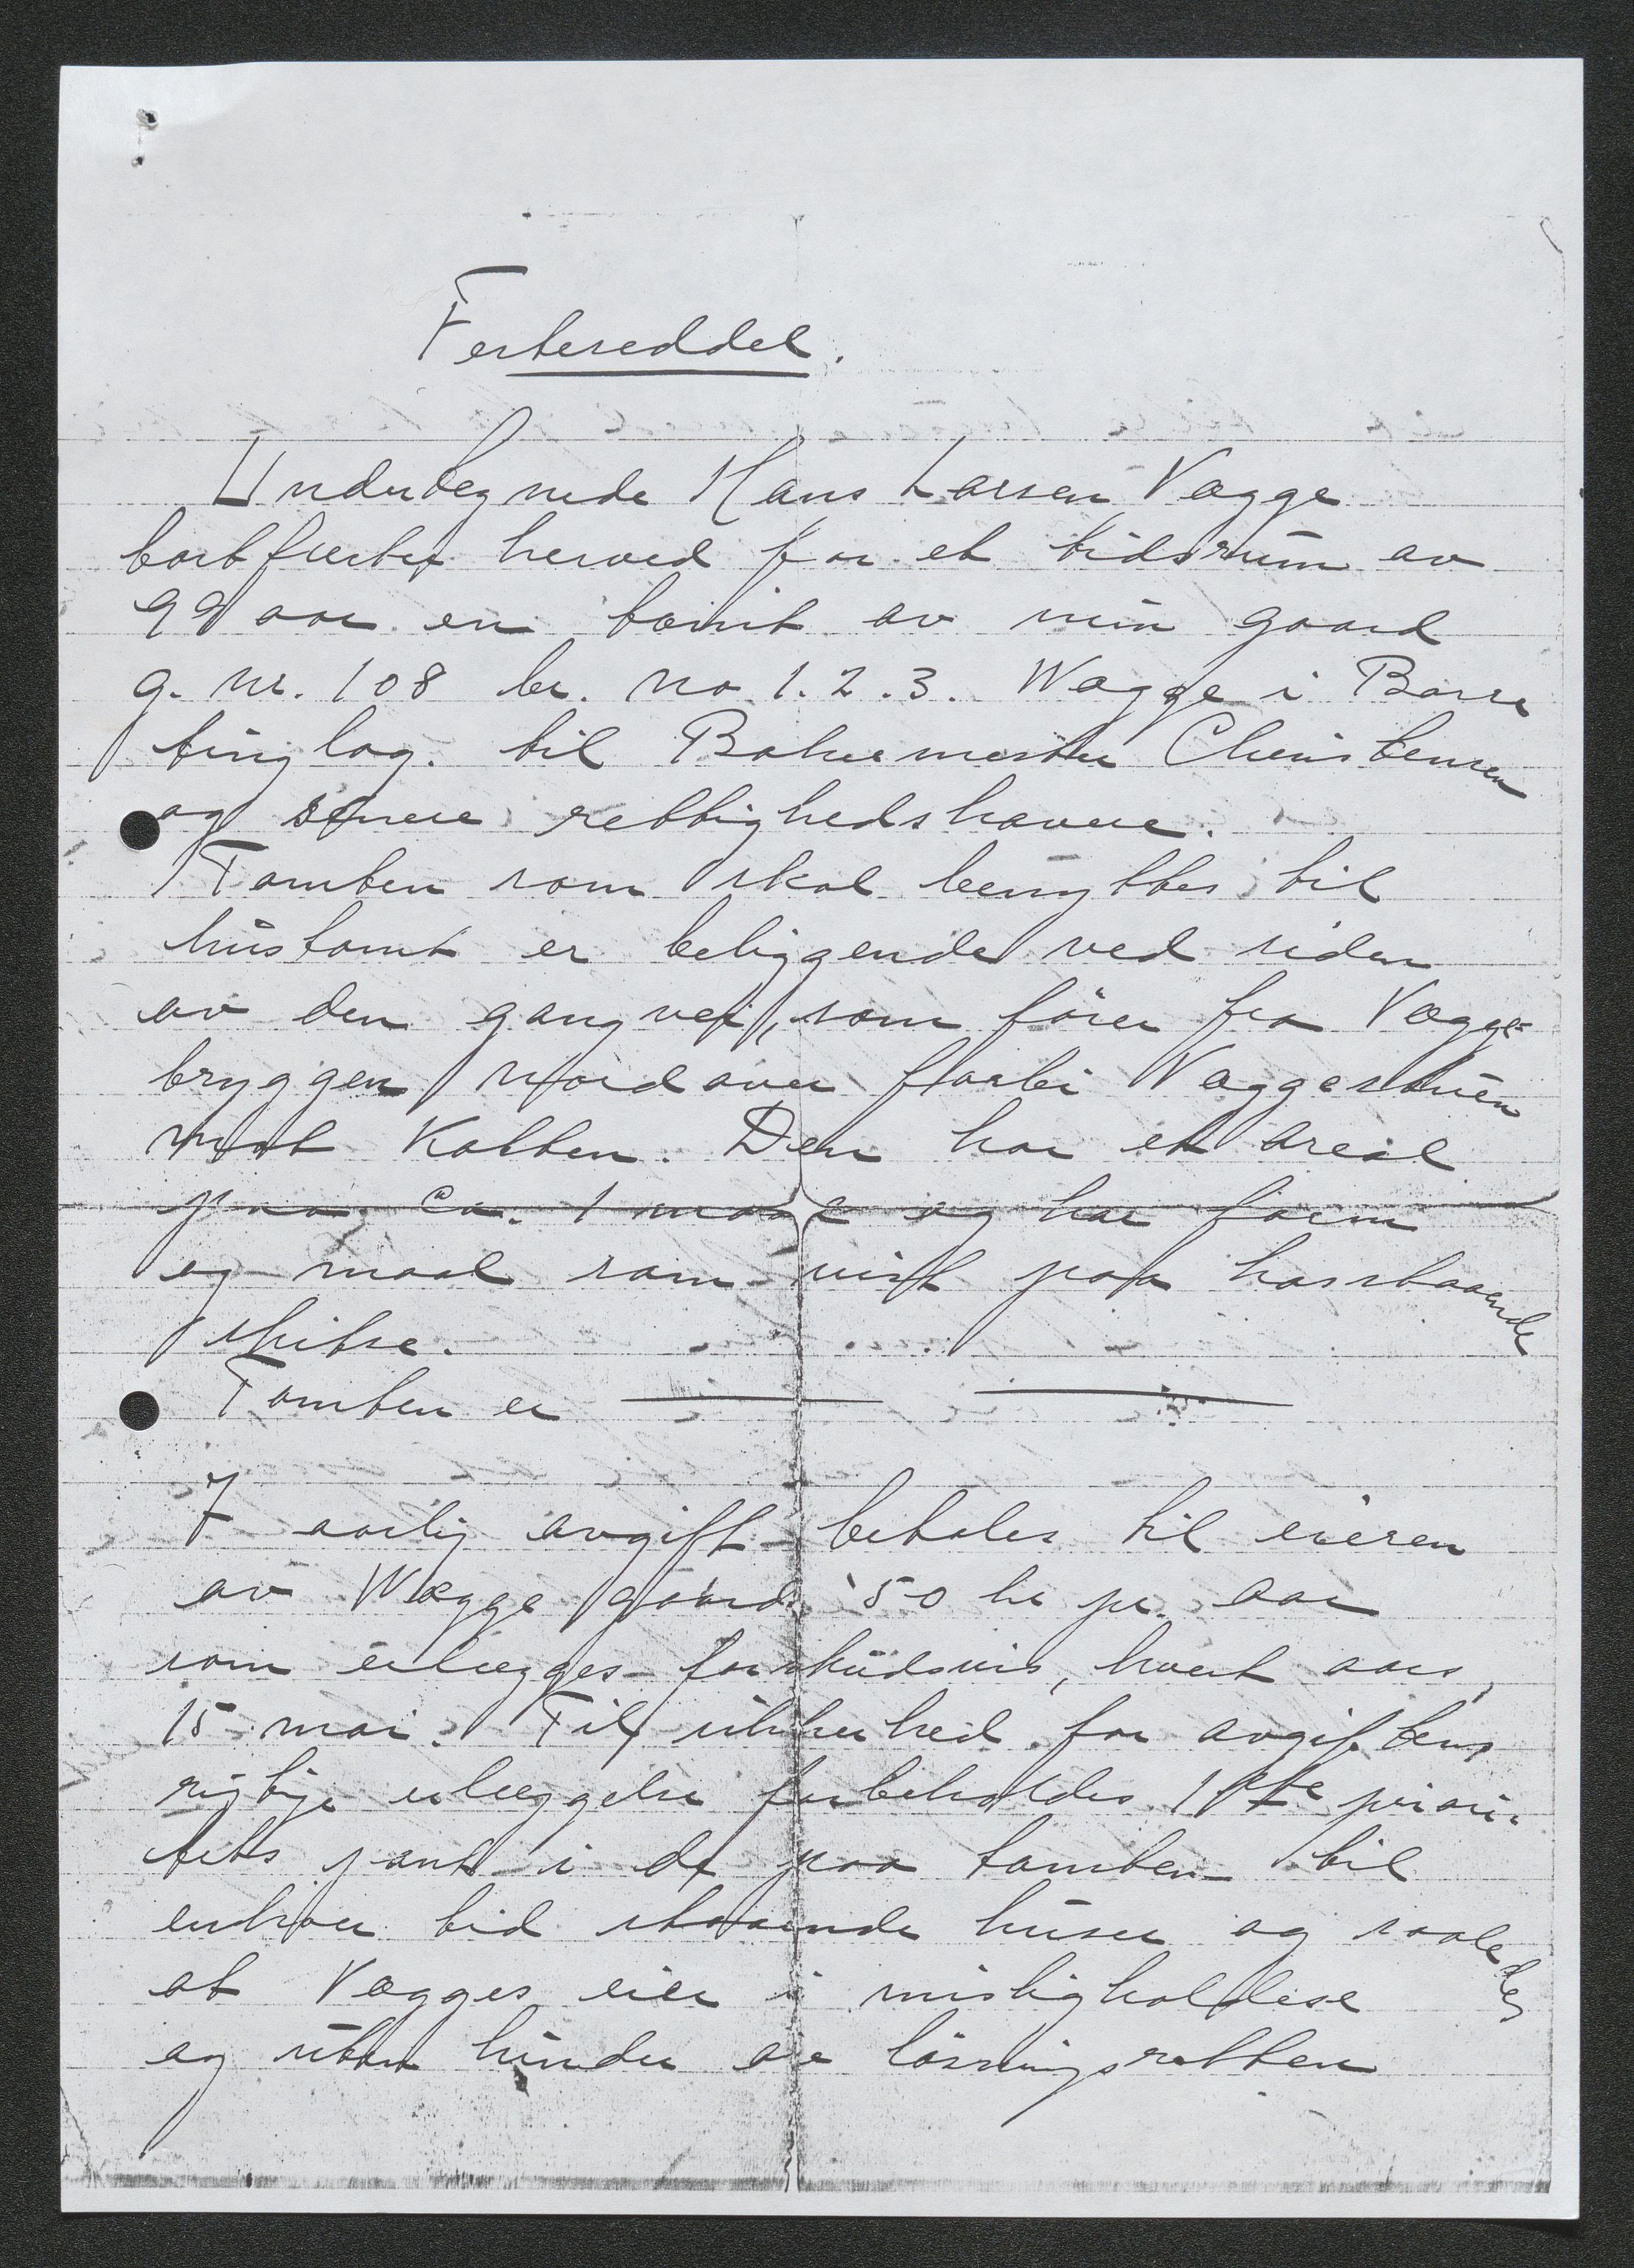 Festeseddel.
Undertegnede Hans Larsen Vægge
bortfæster herved for et tidsrum av
99 aar en tomt av min gaard
g. nr. 108 br. no 1. 2. 3. Wægge i Borre
tinglag. til Banemester Christensen
og senere rettighedshavere.
Tomten som skal benyttes til
hustomt er beliggende ved siden
av den gangvei, som fører fra Vægge-
bryggen nordover forbi Væggestuen
mot Kolben. Den har et areal
paa ca. 1 maal og har form
og maal som vist paa hosstaaende
skitse.
Tomten er
I aarlig avgift betales til eieren
av Wægge gaard 50 kr pr. aar
som erlægges forskudsvis, hvert aars
15 mai. Til sikkerhed for avgiftens
rigtige erlæggelse forbeholdes 1ste priori-
tets pant i de paa tomten til
enhver tid staaende huser og saaledes
at Vægges eier i misligholdese
og uten hinder av løsningsretten